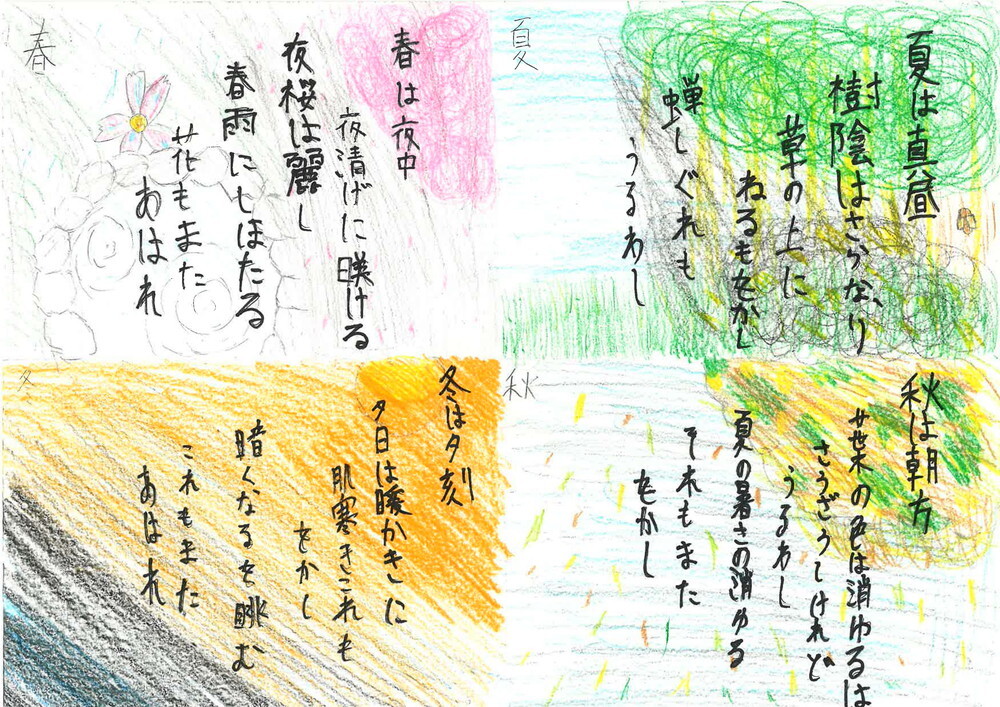 春
春は夜中
夜清げに暎ける
夜桜は麗し
春雨にしほたる
花もまた
あはれ
夏
夏は真昼
樹陰はさらなり
草の上に
ねるもをかし
蝉しぐれも
うるわし
秋
秋は朝方
葉の色は消ゆるは
さうざうしけれど
うるわし
夏の暑さの消ゆる
それもまた
をかし
冬
冬は夕刻
夕日は暖かきに
肌寒きこれも
をかし
暗くなるを眺む
これもまた
あはれ